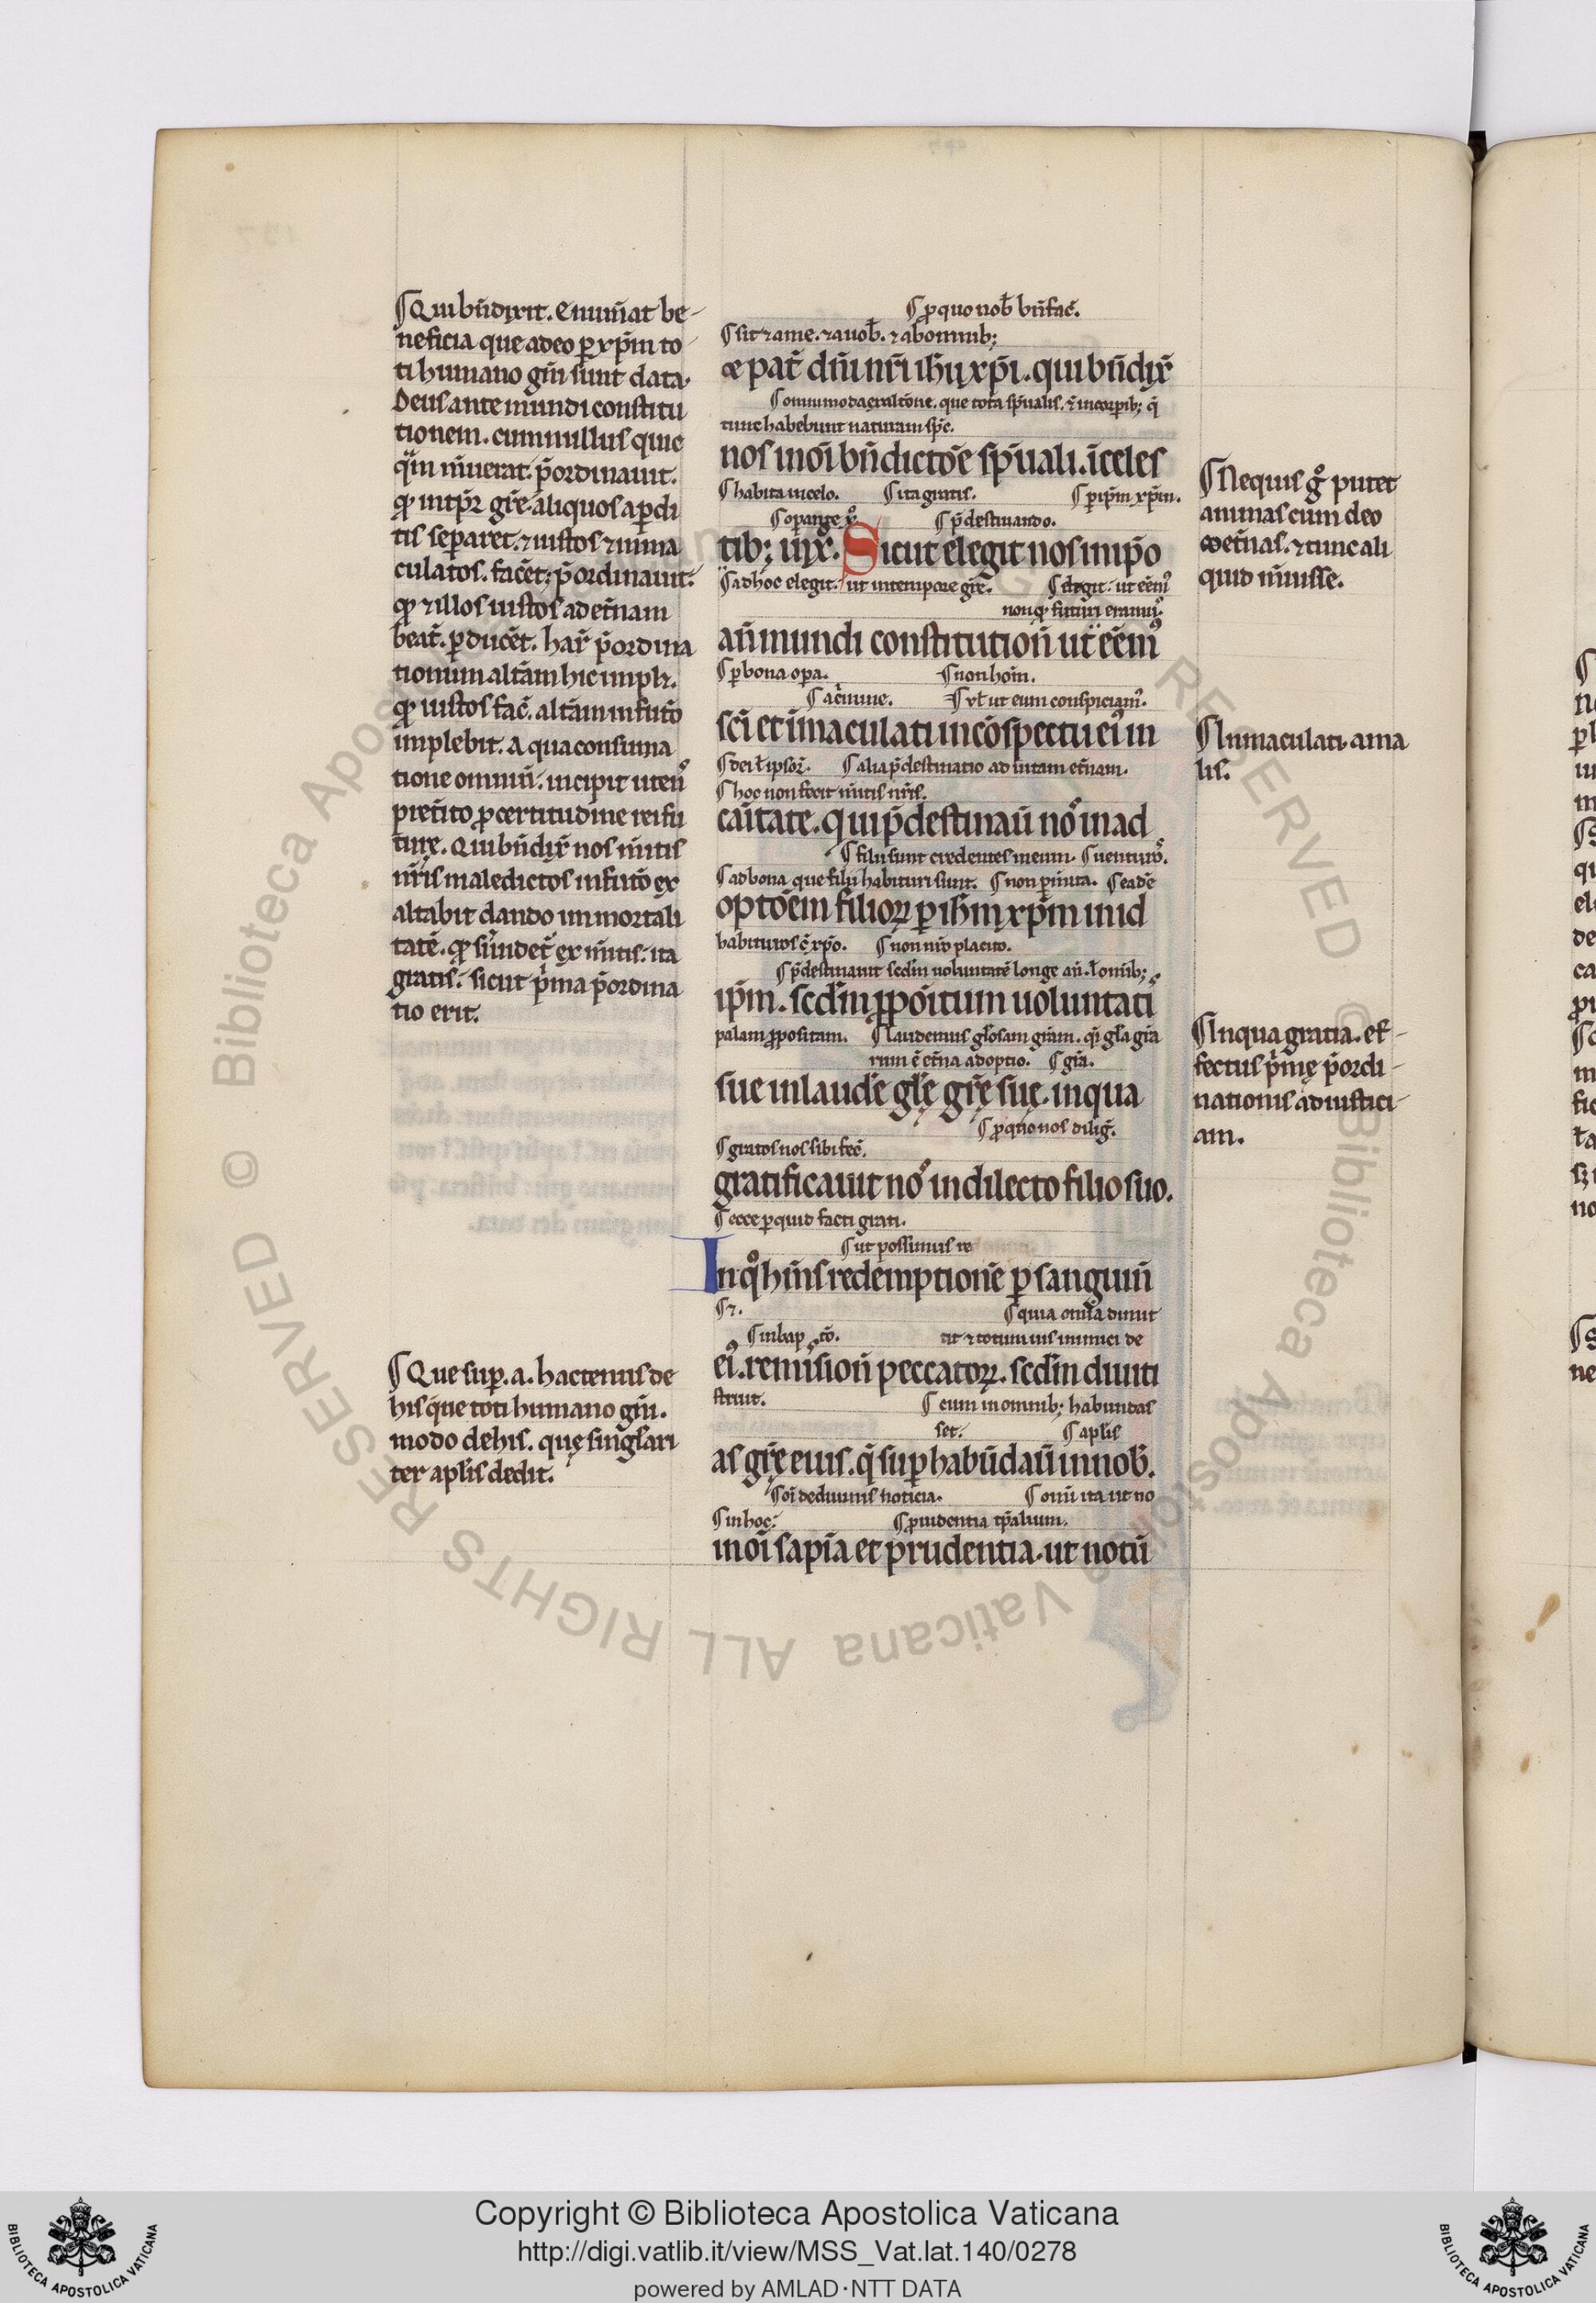 ¶Qui bn̄dixit. Enum̄at be-
neficia que a deo ꝑ xp̄m to
ti humano gn̄i sunt data.
Deus ante mundi constitu
tionem. cum nullus quic
qͣm m̄uerat. p̄ordinauit.
tis sep̄aret. ⁊ iustos ⁊ inma
culatos. facēt; p̄ordinauit.
beat̄. ꝑducēt. har̄ p̄ordina
tionum altām hic impl.
implebit. A qua consuma
tione omniū. incipit utens
pret̄ito ꝓ certitudine rei fu
ture. Qui bn̄dix̄ nos m̄itis
nr̄is maledictos in futō ex
altabit dando immortali
gratis. sicut p̄ma p̄ordina
tio erit.
¶Que sup̄. a. hactenus de
his que toti humano gn̄i.
modo de his. quę singlari
ter aplīs dedit.
¶ꝓ quo nob̄ bn̄fac̄.
¶sit ⁊ a me. ⁊ a uob̄. ⁊ ab omnib;
⁊ pat̄ dn̄i nr̄i ih̄u xp̄i. qui bn̄dix̄
tunc habebunt naturam sp̄c.
nos in oī bn̄dictōe sp̄uali. ī celes
¶habita in celo. ¶ita gratis. ¶ꝑ ip̄m xp̄m.
¶p̄destinando.
tib; ī xͦ. Sicut elegit nos in ip̄o
¶ad hoc elegit. ut in tempore grē. ¶elegit. ut eēm9
non qͣ futuri eramus.
an̄ mundi constitution̄ ut eēm9
¶ꝑ bona opa. ¶non hoīm.
¶a crimine. ¶ul̄ ut eum conspiciam9.
scī et īmaculati in cōspectu ei9 in
¶alia p̄destinatio ad uitam et̄nam.
¶hoc non fecit m̄itis nr̄is.
caritate. qui p̄destinaū nos in ad
¶filii sunt credentes in eum. ¶uenturos.
¶ad bona que filii habituri sunt. ¶non ꝑ m̄ita. ¶eadē
optōem filioꝝ ꝑ ih̄m xp̄m in id
habituros ē xp̄o. ¶non nr̄o placito.
¶p̄destinauit scd̄m uoluntatē longe an̄. l̄ omīb;
ip̄m. scd̄m ꝓpoitum uoluntatis
palam ꝓpositam. ¶laudemus gl̄osam grām. qͥ gl̄a grā
rum ē et̄na adoptio. ¶grā.
sue in laudē glę̄ grę̄ suę. in qua
¶ꝓ quo nos diliḡ.
¶gratos nos sibi fec̄.
gratificauit nos in dilecto filio suo.
¶ecce ꝑ quid facti grati.
¶ut possimus re
In qͦ hm̄s redemptionē ꝑ sanguin̄
¶⁊. ¶quia omīa dimit
¶in bap tō. tit ⁊ totum ius inimici de
ei9. remission̄ peccatoꝝ. scd̄m diuiti
struit. ¶cum in omnib; habundas
set. ¶aplīs
as grę̄ eius. q̄ suphabūdaū in nob̄.
¶oī de diuinis noticia. ¶omī ita ut no
¶in hoc. ¶prudentia tp̄alium.
in oī sapīa et prudentia. ut notū
¶Nequis gͦ putet
animas cum deo
coet̄nas. ⁊ tunc ali
quid m̄uisse.
¶Inmaculati. a ma
lis.
¶In qua gratia. ef-
fectus p̄mę p̄ordi-
nationis ad iustici-
am.
Copyright © Biblioteca Apostolica Vaticana
http://digi.vatlib.it/view/MSS_Vat.lat.140/0278
powered by AMLAD·NTT DATA
BIBLIOTECA APOSTOLICA VATICANA
BIBLIOTECA APOSTOLICA VATICANA
© Biblioteca Apostolica Vaticana ALL RIGHTS RESERVED